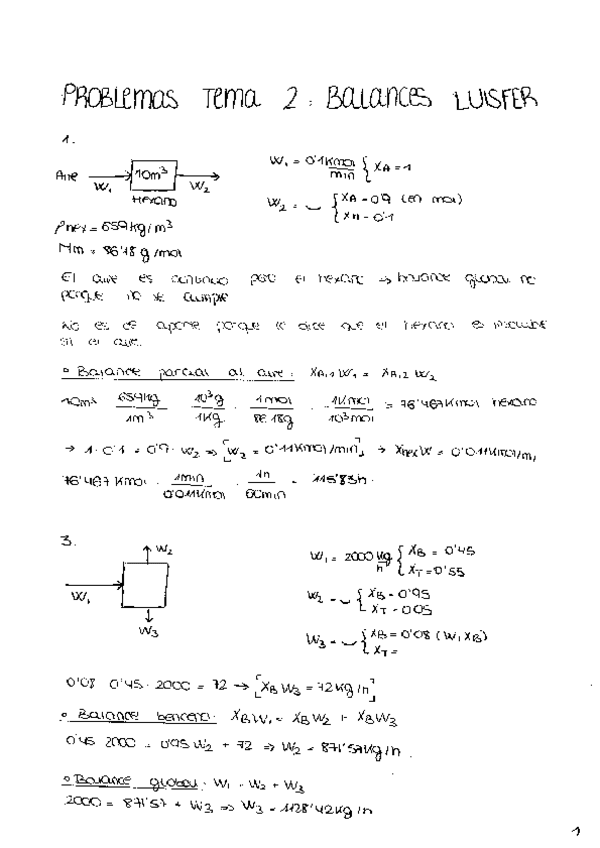 PROBLEMAS TEMA 2: BALANCES LUISFER
1.
Aire W₁ 10m³ W₂
Hexano
W₁ = 0'1 Kmol/min { XA = 1
W₂ = — { XA = 0'9 (en mol)
XH = 0'1
ρhex = 659 kg/m³
Mm = 86'18 g/mol
El aire es continuo pero el hexano → balance global no
porque no se cumple
No es de aporte porque te dice que el hexano es insoluble
en el aire.
• Balance parcial al aire: XA,1 W₁ = XA,2 W₂
10m³ · 659kg/1m³ · 10³g/1kg · 1mol/86'18g · 1Kmol/10³mol = 76'467 Kmol hexano
→ 1 · 0'1 = 0'9 · W₂ ⇒ [W₂ = 0'11 Kmol/min] → XhexW = 0'011 Kmol/m,
76'467 Kmol · 1min/0'011Kmol · 1h/60min = 115'83h.
3.
W₁ W₂ W₃
W₁ = 2000 kg/h { XB = 0'45
XT = 0'55
W₂ = — { XB = 0'95
XT = 0'05
W₃ = — { XB = 0'08 (W₁XB)
XT =
0'08 · 0'45 · 2000 = 72 → [XB W₃ = 72 kg/h]
• Balance benceno: XB W₁ = XB W₂ + XB W₃
0'45 · 2000 = 0'95 W₂ + 72 ⇒ W₂ = 871'57 kg/h.
• Balance global: W₁ = W₂ + W₃
2000 = 871'57 + W₃ ⇒ W₃ = 1128'42 kg/h
1